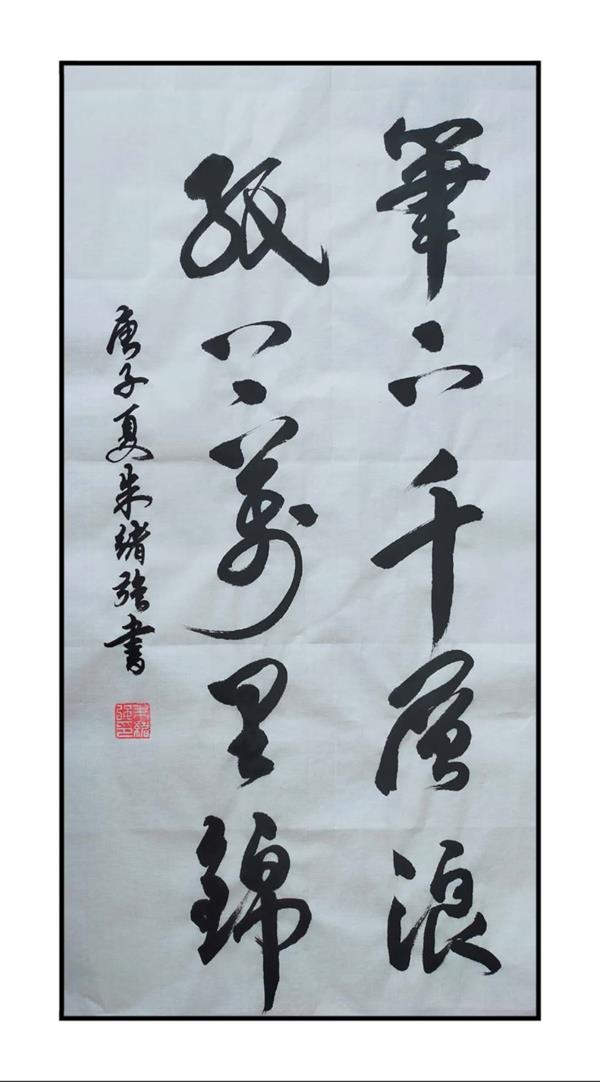 筆下千層浪
紙上萬里錦
庚子夏朱緒強書
朱緒強印